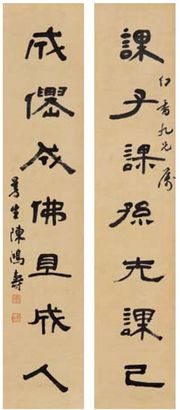 課子課孫先課己
香九兄屬
成僊成佛且成人
曼生陳鴻壽